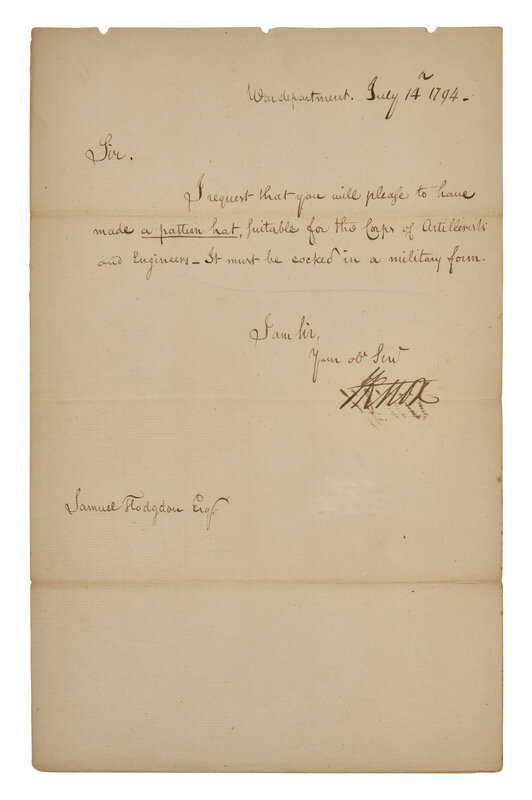 War department. July 14th 1794.
Sir.
I request that you will please to have
made a pattern hat, suitable for the Corps of Artillerists
and Engineers – It must be cocked in a military form.
I am Sir,
Your obt Servt
HKnox
Samuel Hodgdon Esqr.